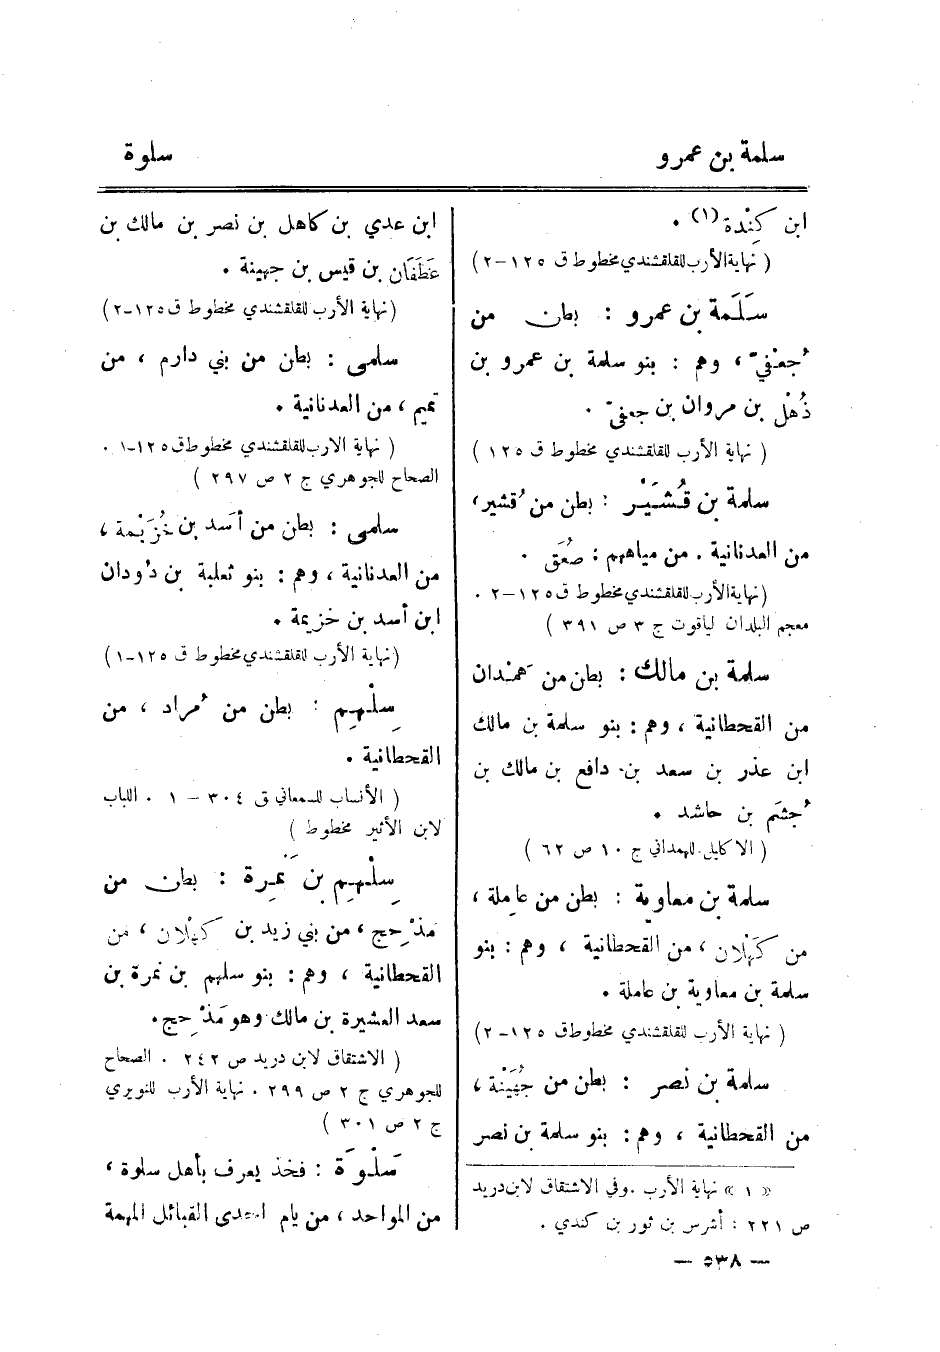 سلمة بن عمرو
سلوة
ابن كِنْدة (١) .
( نهاية الأرب للقلقشندي مخطوط ق ١٢٥–٢ )
سَلَمة بن عمرو : بطن من
ُجعْفيّ ، وهم : بنو سلمة بن عمرو بن
ذُهْل بن مروان بن جعفيّ .
( نهاية الأرب للقلقشندي مخطوط ق ١٢٥ )
سلمة بن قُشَيْر : بطن من ُقشير ،
من العدنانية . من مياههم : صُعَق .
( نهاية الأرب للقلقشندي مخطوط ق ١٢٥–٢ .
معجم البلدان لياقوت ج ٣ ص ٣٩١ )
سلمة بن مالك : بطن من هَمْدان
من القحطانية ، وهم : بنو سلمة بن مالك
ابن عذر بن سعد بن دافع بن مالك بن
ُجشَم بن حاشد .
( الاكليل للهمداني ج ١٠ ص ٦٢ )
سلمة بن معاوية : بطن من عاملة ،
من كَهْلان ، من القحطانية ، وهم : بنو
سلمة بن معاوية بن عاملة .
( نهاية الأرب للقلقشندي مخطوط ق ١٢٥–٢ )
سلمة بن نصر : بطن من جُهَيْنة ،
من القحطانية ، وهم : بنو سلمة بن نصر
« ١ » نهاية الأرب . وفي الاشتقاق لابن دريد
ص ٢٢١ : أشرس بن ثور بن كندي .
ابن عدي بن كاهل بن نصر بن مالك بن
غَطَفَان بن قيس بن جهينة .
( نهاية الأرب للقلقشندي مخطوط ق ١٢٥–٢ )
سلمى : بطن من بني دارم ، من
تميم ، من العدنانية .
( نهاية الارب للقلقشندي مخطوط ق ١٢٥–١ .
الصحاح للجوهري ج ٢ ص ٢٩٧ )
سلمى : بطن من أسَد بن خُزَيْمة ،
من العدنانية ، وهم : بنو ثعلبة بن دُودان
ابن أسد بن خزيمة .
( نهاية الأرب للقلقشندي مخطوط ق ١٢٥–١ )
سِلْهِم : بطن من ُمراد ، من
القحطانية .
( الأنساب للسمعاني ق ٣٠٤ – ١ . اللباب
لابن الأثير مخطوط )
سِلْهِم بن نَمِرة : بطن من
مَذْحِج ، من بني زيد بن كهلان ، من
القحطانية ، وهم : بنو سلهم بن نمرة بن
سعد العشيرة بن مالك وهو مَذْحِج .
( الاشتقاق لابن دريد ص ٢٤٢ . الصحاح
للجوهري ج ٢ ص ٢٩٩ . نهاية الأرب للنويري
ج ٢ ص ٣٠١ )
سَلْوَة : فخذ يعرف بأهل سلوة ،
من المواحد ، من يام احدى القبائل المهمة
— ٥٣٨ —